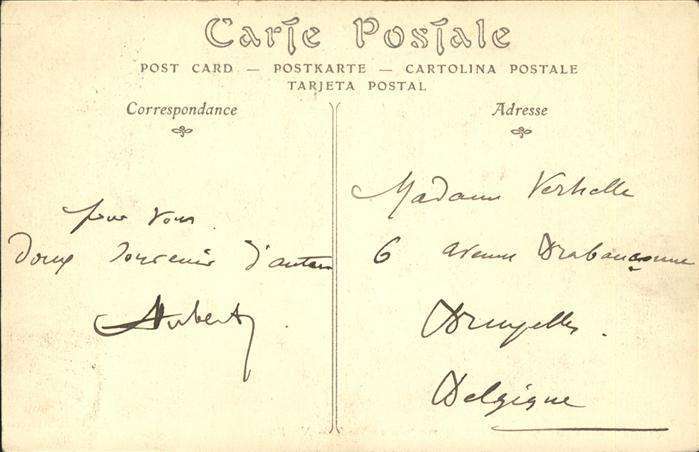 Carte Postale
POST CARD — POSTKARTE — CARTOLINA POSTALE
TARJETA POSTAL
Correspondance
Adresse
pour vous.
Doux souvenir d'antan
Hubert
Madame Verhelle
6 avenue Brabançonne
Bruxelles.
Belgique